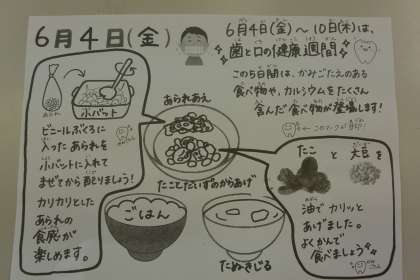 6月4日(金)
6月4日(金)～10日(木)は、
歯と口の健康週間
この5日間は、かみごたえのある
食べ物や、カルシウムをたくさん
含んだ食べ物が登場します!
←このマークが目印!
あられ
小バット
ビニールぶくろに
入ったあられを
小バットに入れて
まぜてから配りましょう!
カリカリとした
あられの
食感が
楽しめます。
あられあえ
たことだいずのからあげ
ごはん
たぬきじる
たこ と 大豆を
油でカリッと
あげました。
よくかんで
食べましょう